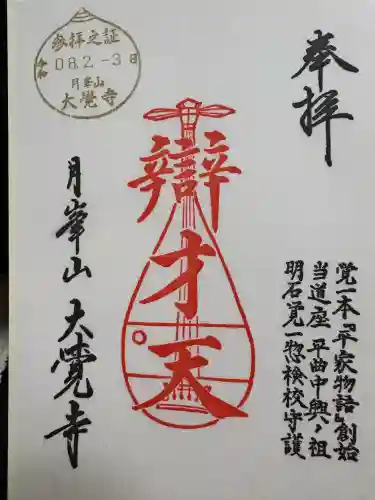 奉拝
覚一本『平家物語』創始
当道座 平曲中興ノ祖
明石覚一惣検校守護
辯才天
月峯山 大覺寺
参拝之証
令和 08.2.-3 日
月峯山
大覺寺